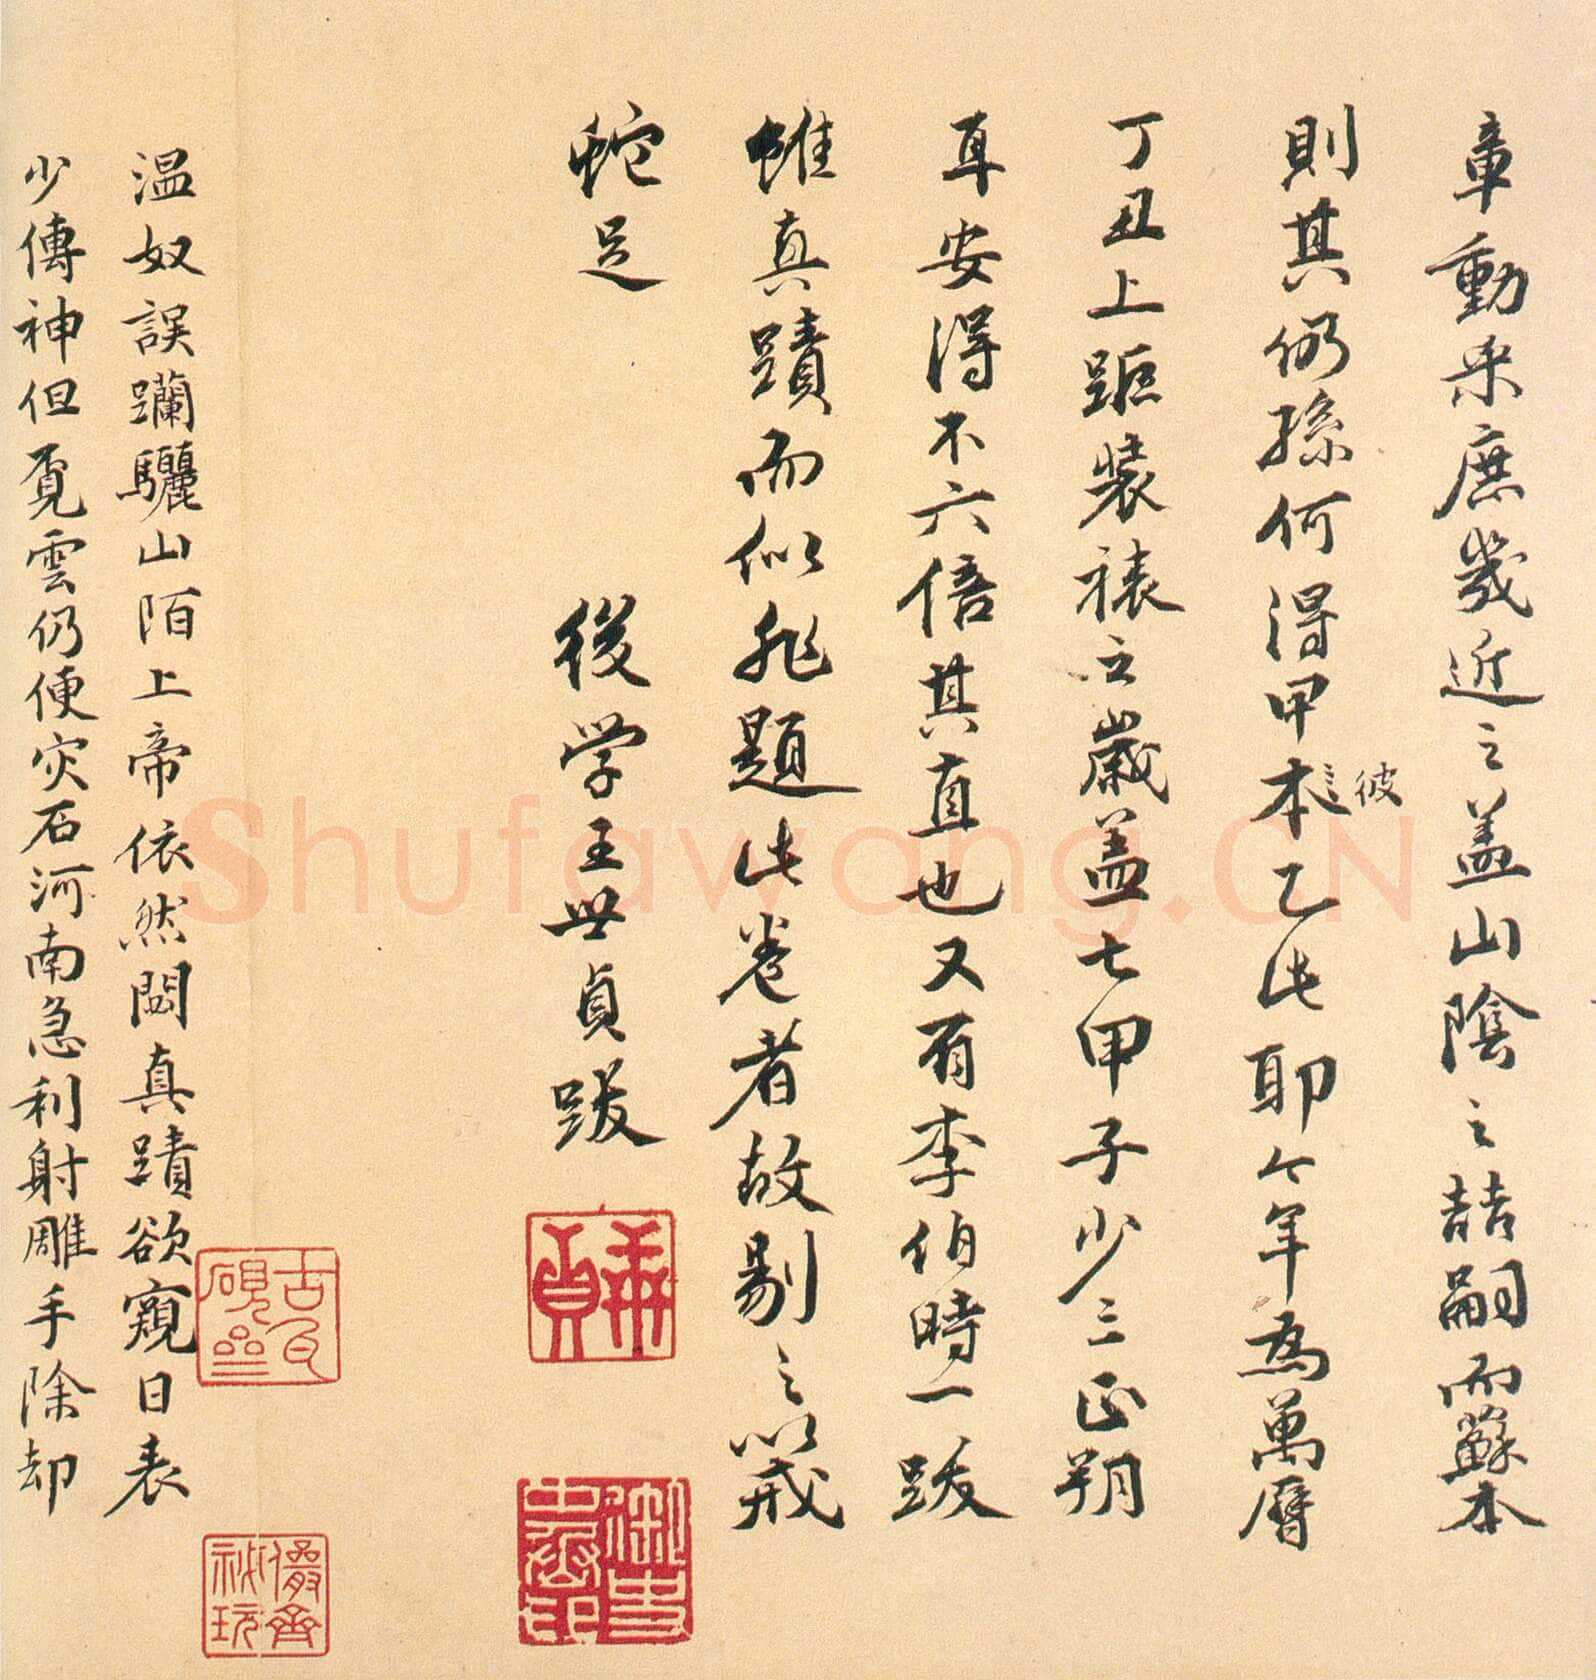 章動采庶幾近之蓋山陰之喆嗣而蘇本
則其仍孫何得甲本乙此耶今年為萬曆
彼
丁丑上距裝裱之歲蓋七甲子少三正朔
耳安得不六倍其直也又有李伯時一跋
雖真蹟而似非題此卷者故剔之以戒
蛇足
後学王世貞跋
溫奴誤躪驪山陌上帝依然閟真蹟欲窺日表
少傳神但覓雲仍便灾石河南急利射雕手除却
古瓦硯
儼齋秘玩
Shufawang.CN